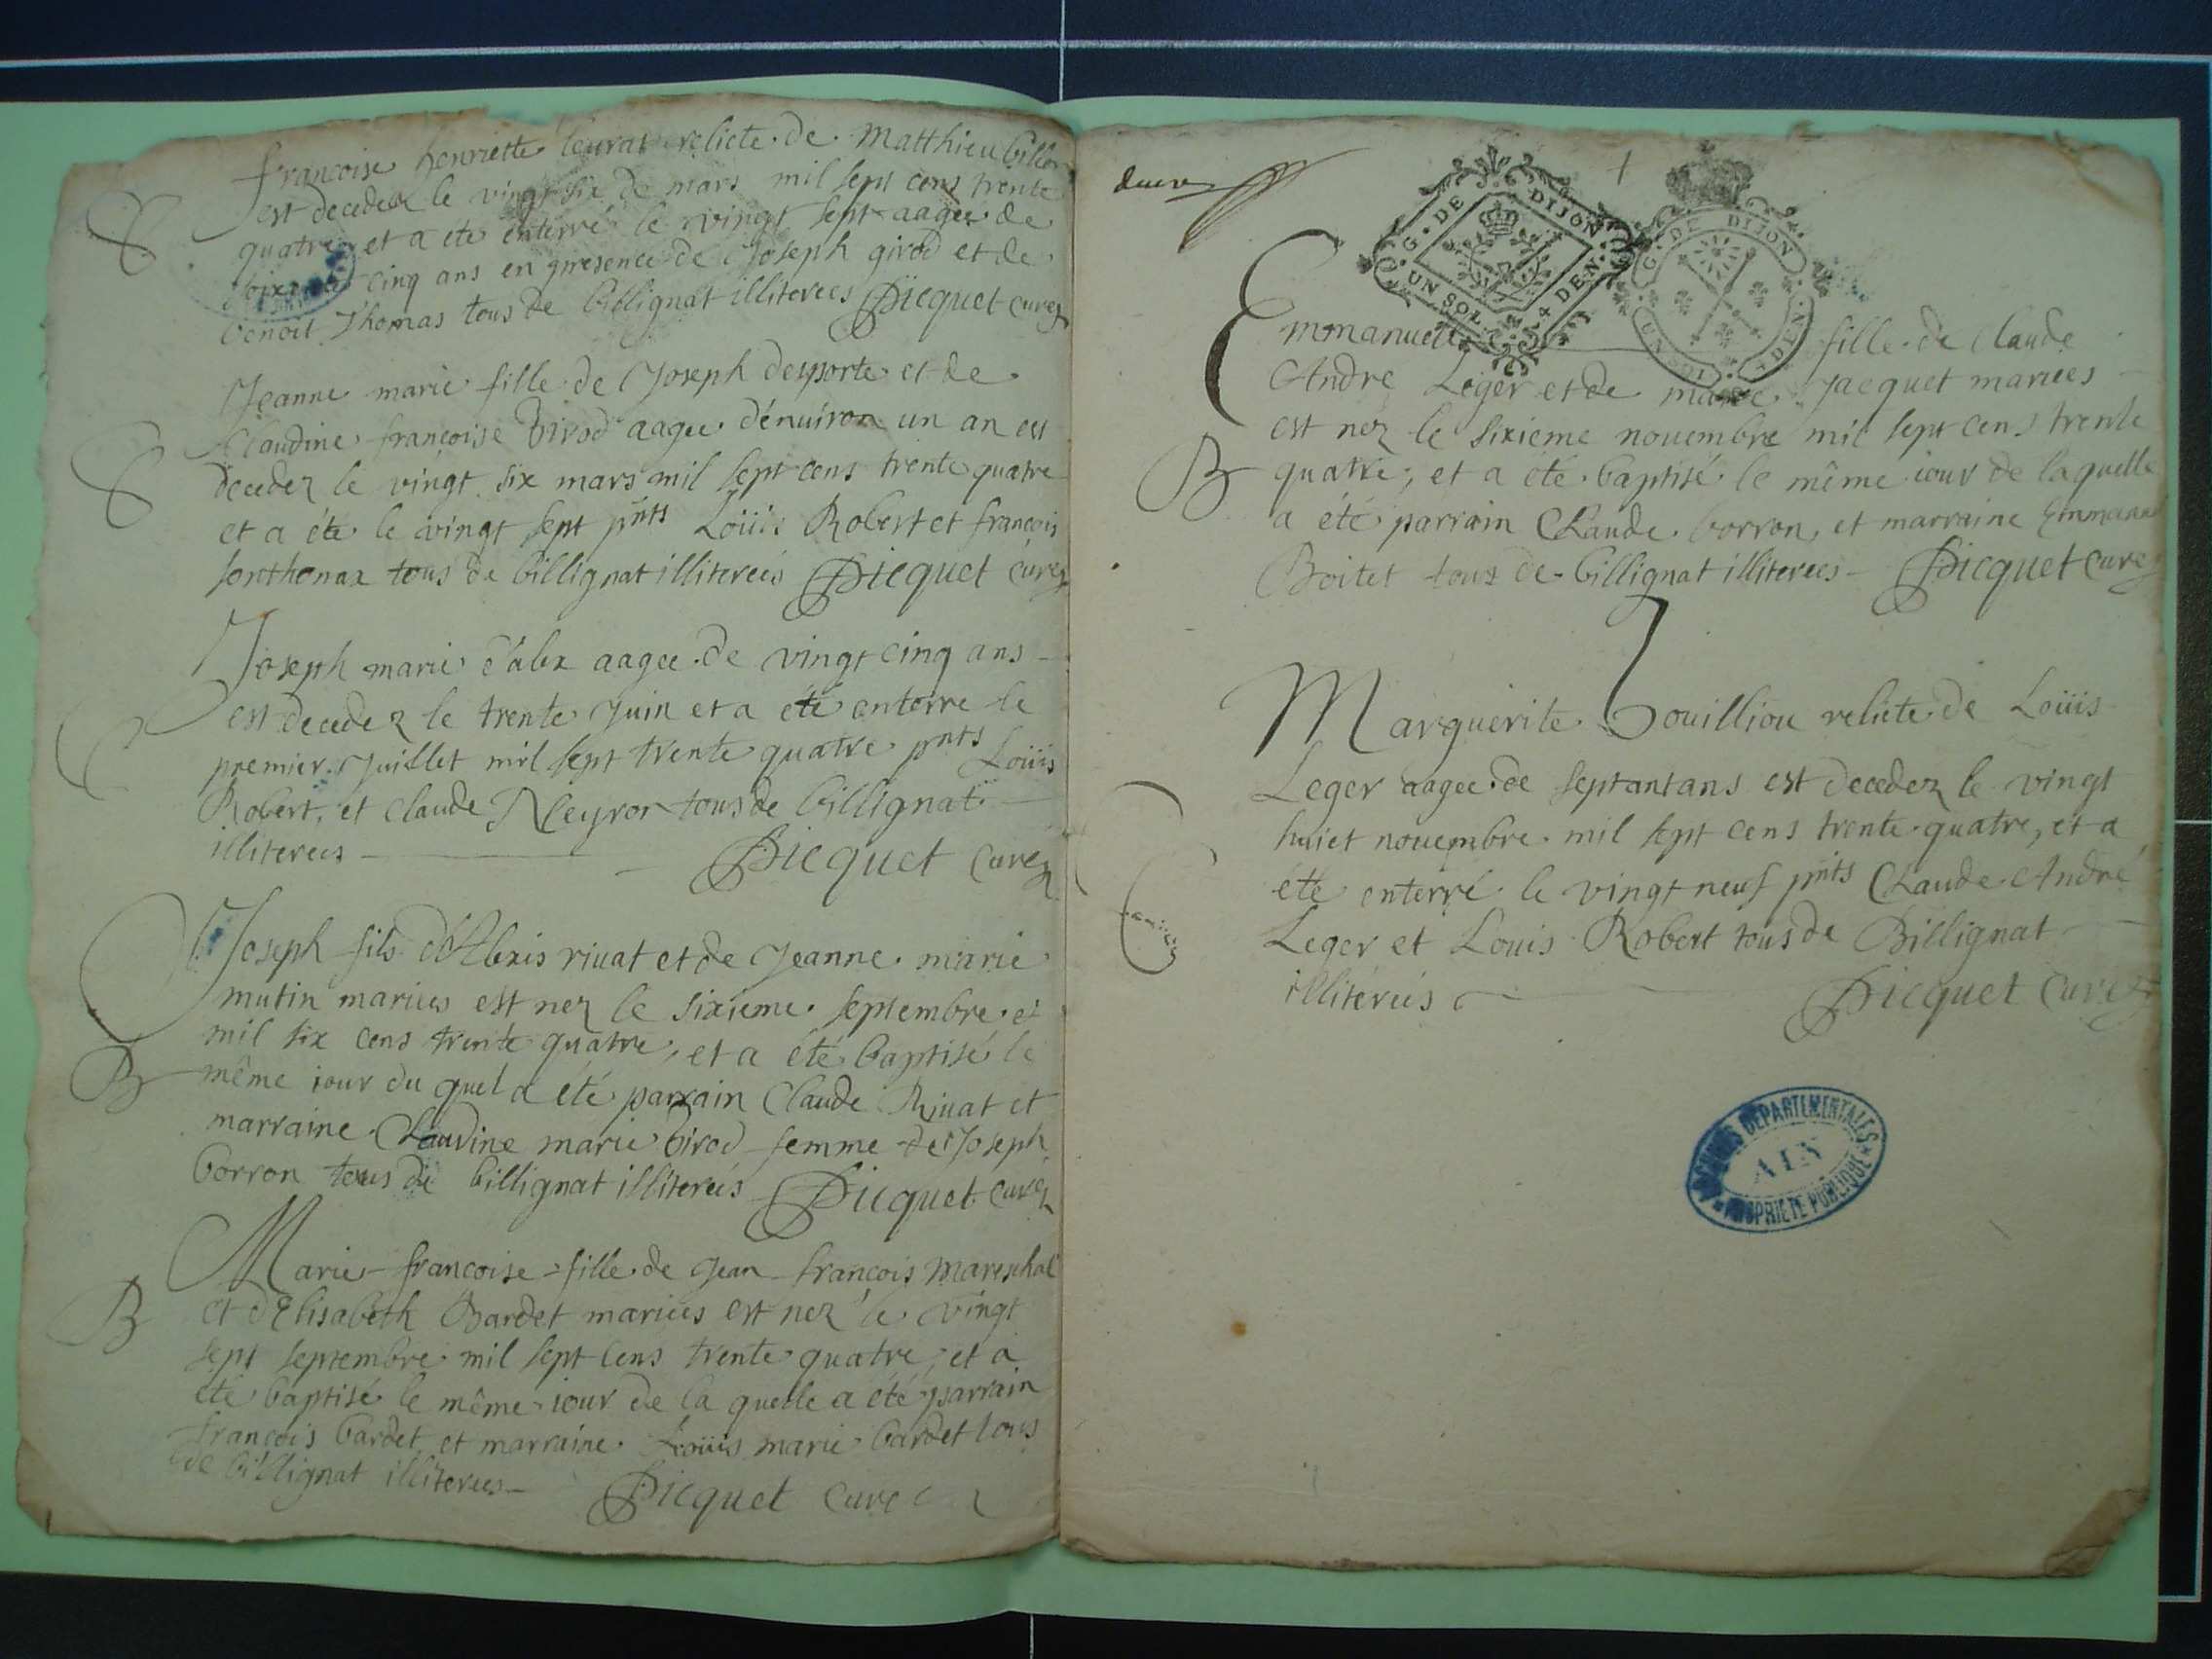 francoise henriette leurat relicte de Matthieu billon
est decedez le vingt six de mars mil sept cens trente
quatre et a ete enterré le vingt sept aagee de
soixante cinq ans en presence de Joseph girod et de
benoit Thomas tous de billignat illiterees Dicquet curez
Jeanne marie fille de Joseph desporte et de
Claudine françoise Girod aagee d'enuiron un an est
decedez le vingt six mars mil sept cens trente quatre
et a éte le vingt sept pnts Loüis Robert et françois
sonthonax tous de billignat illitereés Dicquet curez
Joseph marie aagee de vingt cinq ans
est decedez le trente Juin et a été enterre le
premier Juillet mil sept trente quatre pnts Loüis
Robert, et Claude Neyron tous de billignat
illitereés Dicquet curez
Joseph fils d'Alexis riuat et de Jeanne marie
mutin mariées est nez le sixieme septembre et
mil six cens trente quatre, et a été baptisé le
B même iour du quel a été parrain Claude Riuat et
marraine Claudine marie Girod femme de Joseph
borron tous de billignat illitereés Dicquet curez
Marie francoise fille de Jean françois Mareschal
B et d'Elisabeth Bardet mariées est nez le vingt
sept septembre mil sept cens trente quatre, et a
été baptisé le même iour de la quelle a été parrain
françois bardet et marraine Loüis marie bardet tous
de billignat illiterees Dicquet cure
G. DE DIJON.
UN SOL 4 DEN.
G. DE DIJON
UN SOL 4 DEN.
Emmanuelle fille de Claude
André Leger et de marie Jacquet mariées
est nez le sixieme nouembre mil sept cens trente
B quatre, et a été baptisé le même iour de laquelle
a été parrain Claude borron, et marraine Emmanu
Boitet tous de billignat illiterees Dicquet curez
Marguerite Gouilliou relicte de Loüis
Leger aagee de septantans est decedez le vingt
huict nouembre mil sept cens trente quatre, et a
été enterré le vingt neuf pnts Claude André
Leger et Louis Robert tous de Billignat
illitereés Dicquet Curez
ARCHIVES DÉPARTEMENTALES
AIN
PROPRIÉTÉ PUBLIQUE